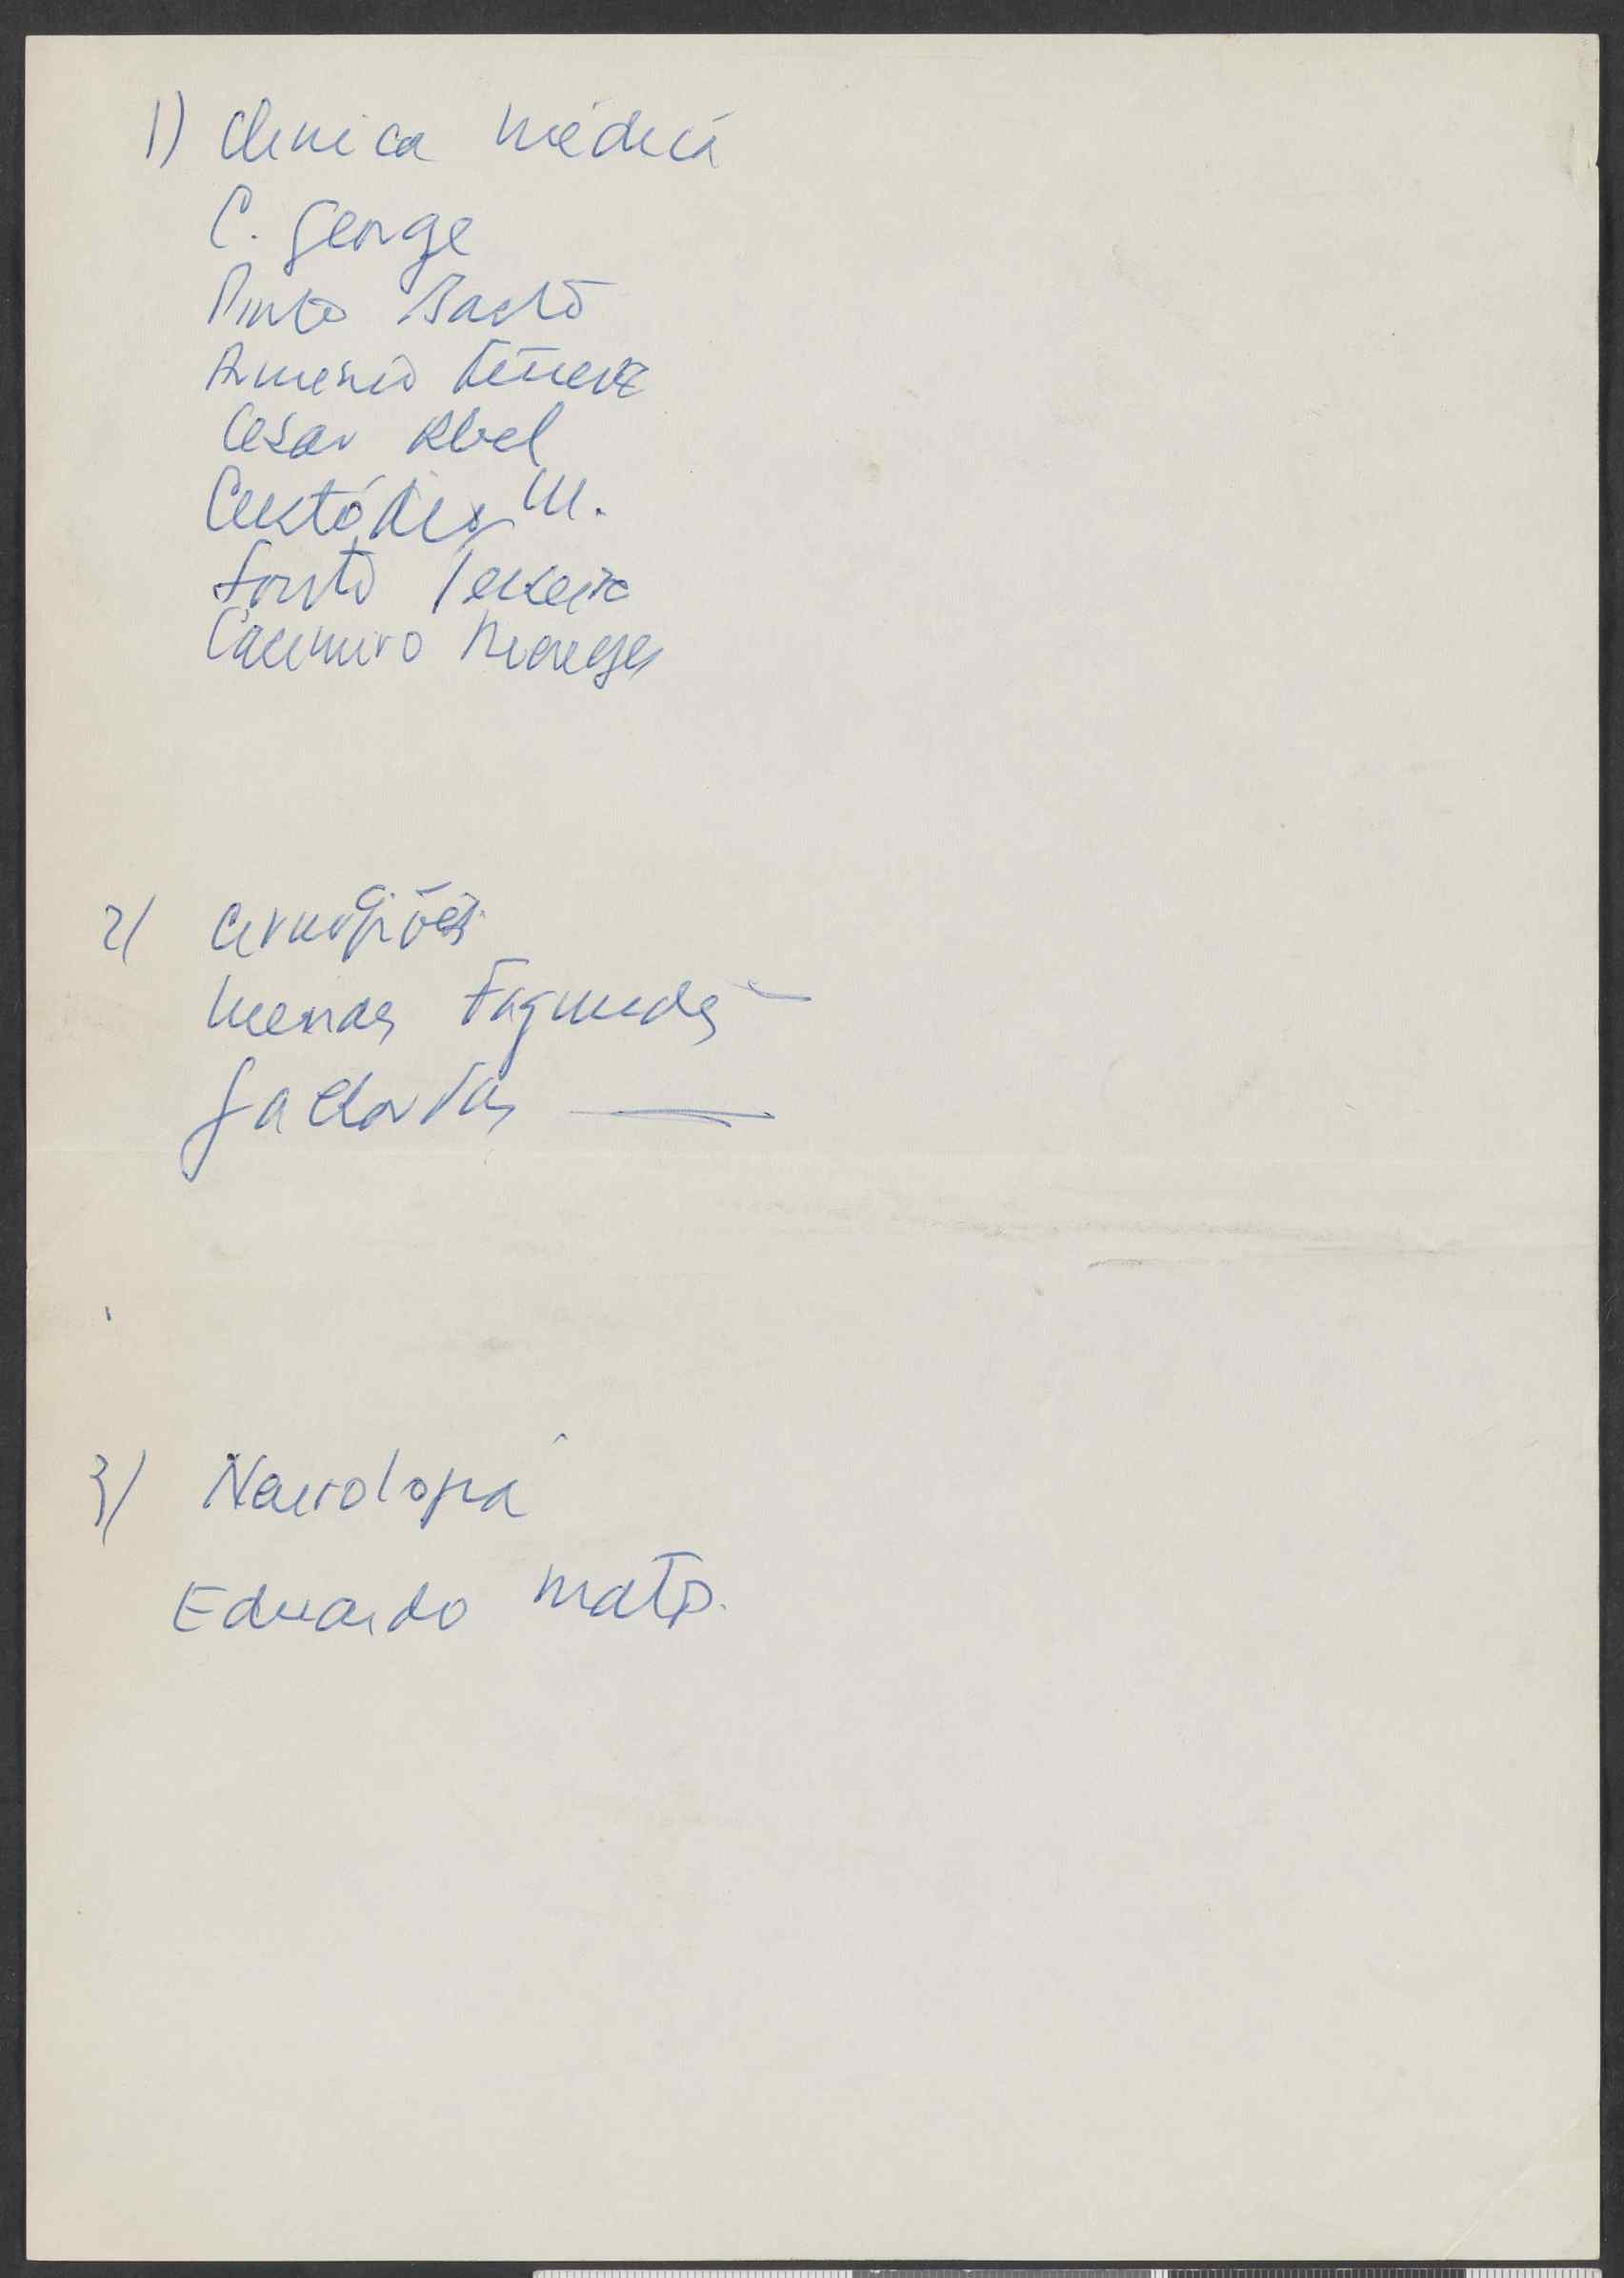 1) Clinica médica
C. George
Pinto Basto
Armenio
Cesar Abel
Custódio M.
Souto Teixeira
Casimiro Menezes
2) Cirurgiões
Menas Fagundes
Galvartas
3) Neurologia
Eduardo Matos.